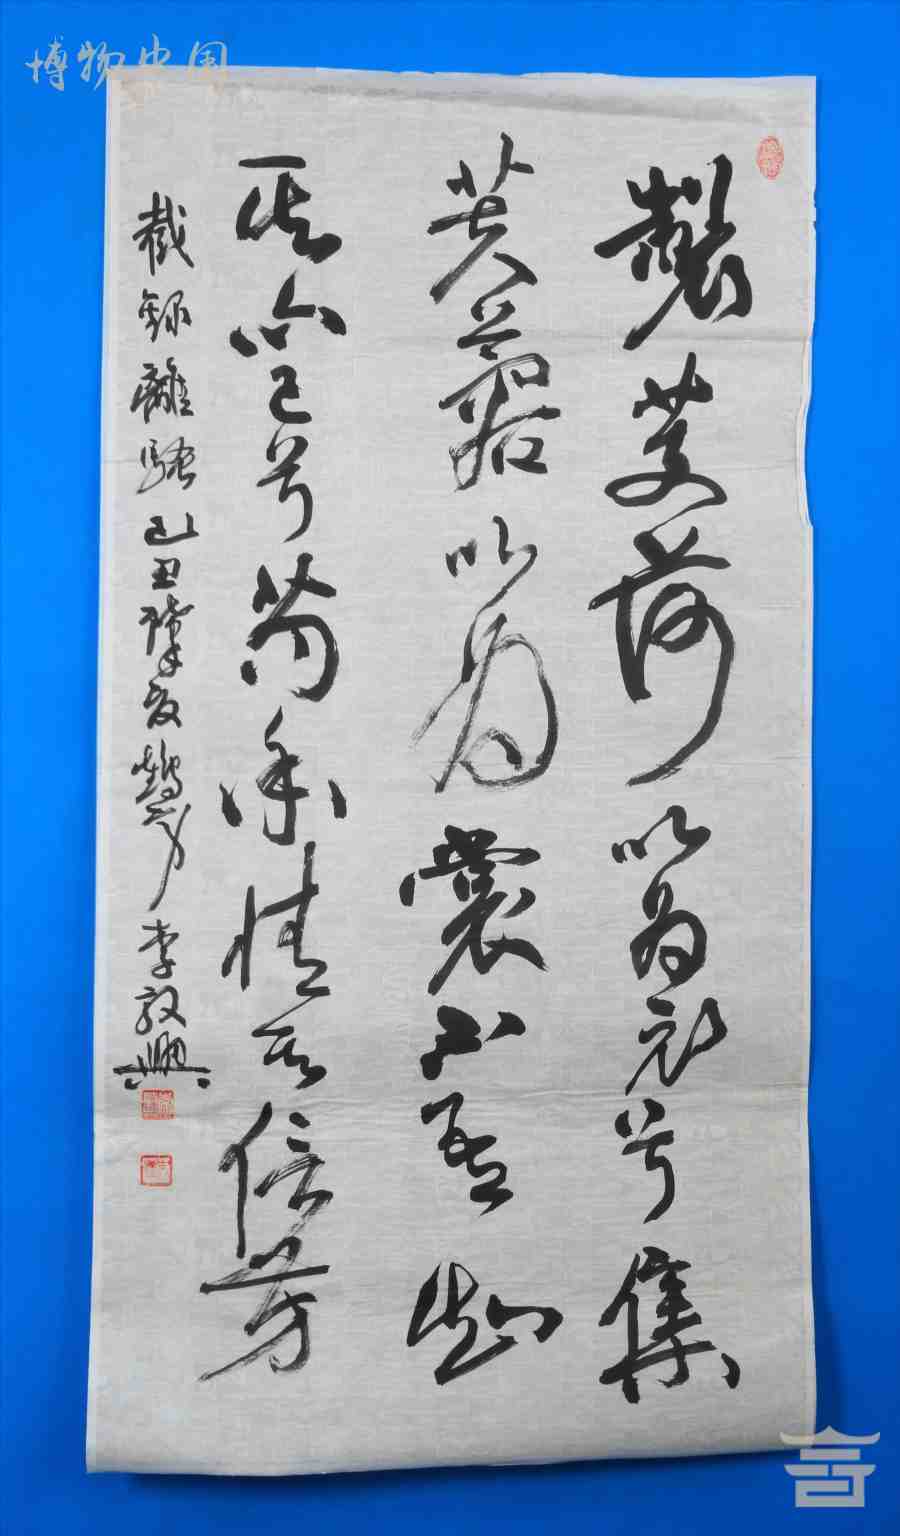 博物中国
製芰荷以為衣兮集
芙蓉以為裳不吾知
其亦已兮苟余情其信芳
截錄離騷丑李敦興